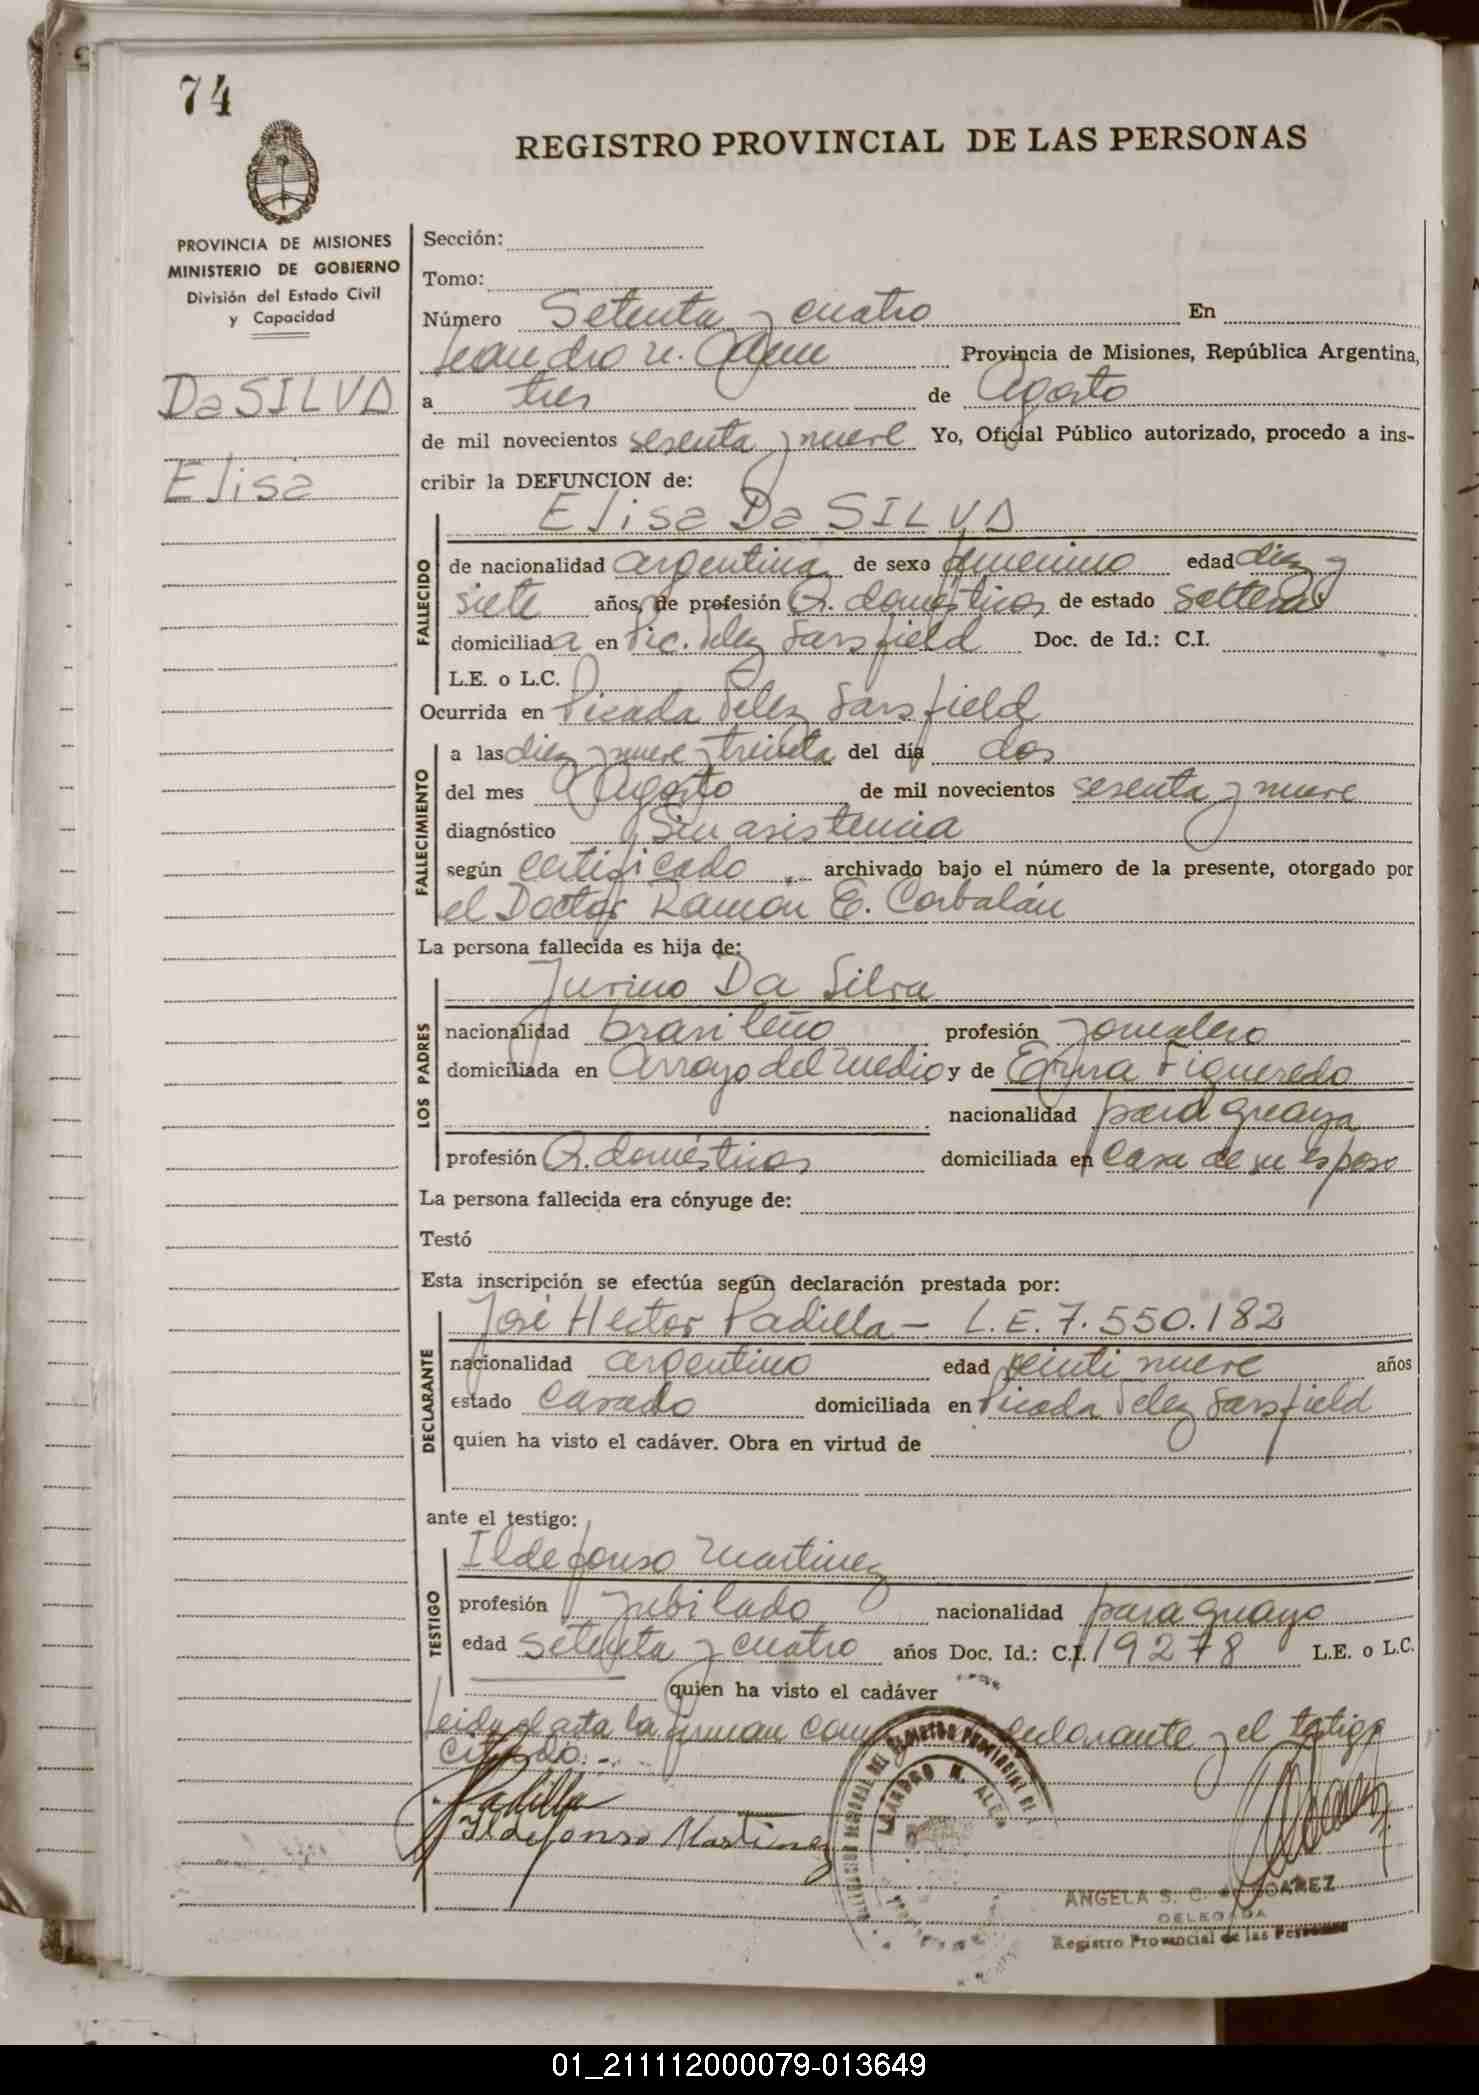 74
REGISTRO PROVINCIAL DE LAS PERSONAS
PROVINCIA DE MISIONES
MINISTERIO DE GOBIERNO
División del Estado Civil
y Capacidad
Da SILVA
Elisa
Sección:
Tomo:
Número Setenta y cuatro En
Leandro N. Alem Provincia de Misiones, República Argentina,
a tres de Agosto
de mil novecientos sesenta y nueve Yo, Oficial Público autorizado, procedo a ins-
cribir la DEFUNCION de:
Elisa Da SILVA
FALLECIDO
de nacionalidad argentina de sexo femenino edad diez y
siete años, de profesión Q. domésticos de estado soltera
domiciliada en Pic. Velez Sarsfield Doc. de Id.: C.I.
L.E. o L.C.
Ocurrida en Picada Velez Sarsfield
FALLECIMIENTO
a las diez y nueve y treinta del día dos
del mes Agosto de mil novecientos sesenta y nueve
diagnóstico Sin asistencia
según certificado archivado bajo el número de la presente, otorgado por
el Doctor Ramón E. Corbalán
La persona fallecida es hija de:
LOS PADRES
Jurino Da Silva
nacionalidad brasileño profesión Jornalero
domiciliada en Arroyo del Medio y de Figueredo
nacionalidad paraguaya
profesión Q. domésticos domiciliada en casa de su esposo
La persona fallecida era cónyuge de:
Testó
Esta inscripción se efectúa según declaración prestada por:
DECLARANTE
José Hector Padilla - L.E. 7.550.182
nacionalidad argentino edad veinti nueve años
estado casado domiciliada en Picada Velez Sarsfield
quien ha visto el cadáver. Obra en virtud de
ante el testigo:
TESTIGO
Ildefonso Martinez
profesión Jubilado nacionalidad paraguayo
edad setenta y cuatro años Doc. Id.: C.I. 19278 L.E. o L.C.
quien ha visto el cadáver
Leida el acta la firman declarante y el testigo
citado.
Padilla
Ildefonso Martinez
ANGELA S. C. SOAREZ
DELEGADA
Registro Provincial de las Personas
01_211112000079-013649